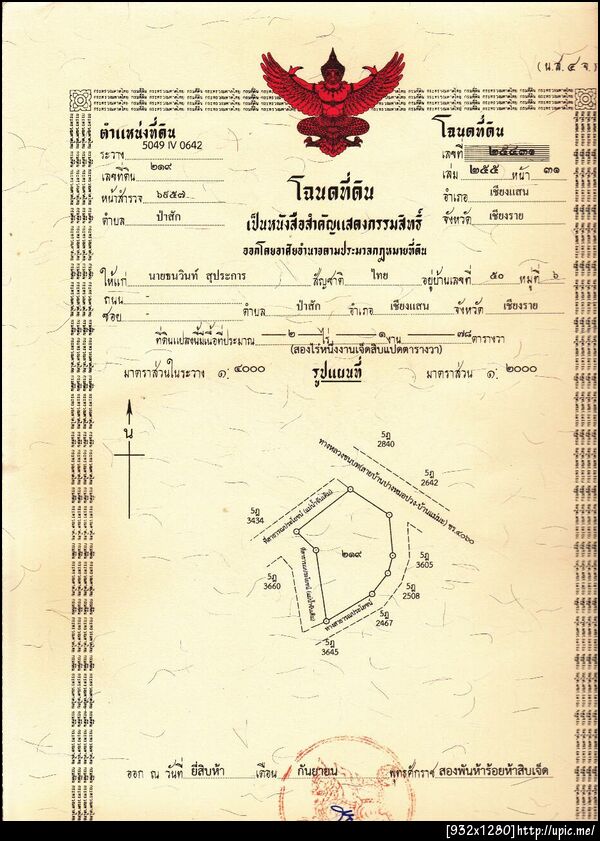 (น.ส.๔ จ.)
ตำแหน่งที่ดิน
ระวาง 5049 IV 0642
เลขที่ดิน ๒๑๙
หน้าสำรวจ ๖๙๕๗
ตำบล ป่าสัก
โฉนดที่ดิน
เลขที่ ๒๕๔๓๑
เล่ม ๒๕๕ หน้า ๓๑
อำเภอ เชียงแสน
จังหวัด เชียงราย
โฉนดที่ดิน
เป็นหนังสือสำคัญแสดงกรรมสิทธิ์
ออกโดยอาศัยอำนาจตามประมวลกฎหมายที่ดิน
ให้แก่ นายธนวินท์ สุประการ สัญชาติ ไทย อยู่บ้านเลขที่ ๕๐ หมู่ที่ ๖
ถนน -
ซอย - ตำบล ป่าสัก อำเภอ เชียงแสน จังหวัด เชียงราย
ที่ดินแปลงนี้มีเนื้อที่ประมาณ ๒ ไร่ ๑ งาน ๗๘ ตารางวา
(สองไร่หนึ่งงานเจ็ดสิบแปดตารางวา)
มาตราส่วนในระวาง ๑: ๔๐๐๐ รูปแผนที่ มาตราส่วน ๑: ๒๐๐๐
น
5ฎ
2840
5ฎ
2642
ทางหลวงชนบท(สายบ้านปางหมอปวง-บ้านแม่มะ) ชร.๔๐๖๐
5ฎ
3434
ที่สาธารณประโยชน์ (แม่น้ำจันติม)
ที่สาธารณประโยชน์ (แม่น้ำจันติม)
๒๑๙
5ฎ
3605
5ฎ
3660
5ฎ
2508
ทางสาธารณประโยชน์
5ฎ
2467
5ฎ
3645
ออก ณ วันที่ ยี่สิบห้า เดือน กันยายน พุทธศักราช สองพันห้าร้อยห้าสิบเจ็ด
[932x1280]http://upic.me/